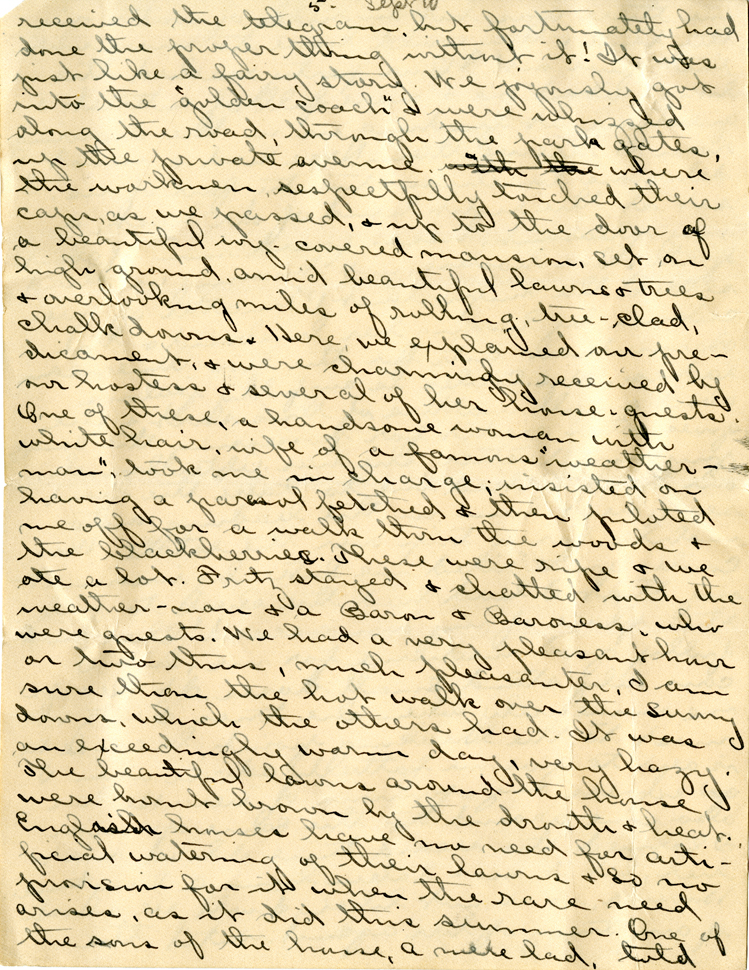 5- Sept 10
received the telegram, but fortunately had
done the proper thing without it! It was
just like a fairy story. We joyously got
into the "golden coach" & were whizzed
along the road, through the park gates,
up the private avenue, with the where
the workmen respectfully touched their
caps, as we passed, & up to the door of
a beautiful ivy-covered mansion, set on
high ground, amid beautiful lawns & trees
& overlooking miles of rolling, tree-clad,
chalk downs. Here, we explained our pre-
dicament, & were charmingly received by
our hostess & several of her house-guests.
One of these, a handsome woman with
white hair, wife of a famous "weather-
man", took me in charge; insisted on
having a parasol fetched & then piloted
me off for a walk thru the woods &
the blackberries. These were ripe & we
ate a lot. Fritz stayed & chatted with the
weather-man & a Baron & Baroness, who
were guests. We had a very pleasant hour
or two thus, much pleasanter, I am
sure than the hot walk over the sunny
downs, which the others had. It was
an exceedingly warm day, very hazy.
The beautiful lawns around the house
were burnt brown by the drouth & heat.
English houses have no need for arti-
ficial watering of their lawns & so no
provision for it when the rare need
arises, as it did this summer. One of
the sons of the house, a mere lad, told